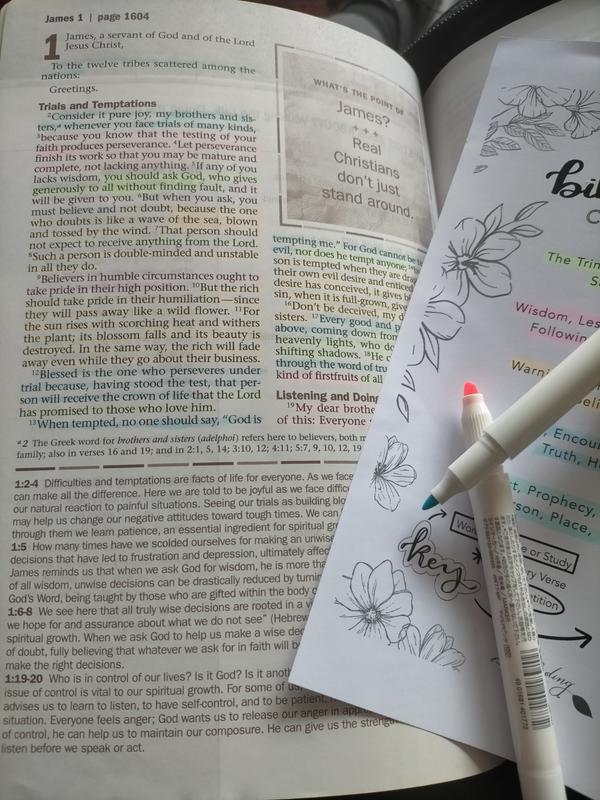 James 1 | page 1604
1 James, a servant of God and of the Lord
Jesus Christ,
To the twelve tribes scattered among the
nations:
Greetings.
Trials and Temptations
2Consider it pure joy, my brothers and sis-
ters,a whenever you face trials of many kinds,
3because you know that the testing of your
faith produces perseverance. 4Let perseverance
finish its work so that you may be mature and
complete, not lacking anything. 5If any of you
lacks wisdom, you should ask God, who gives
generously to all without finding fault, and it
will be given to you. 6But when you ask, you
must believe and not doubt, because the one
who doubts is like a wave of the sea, blown
and tossed by the wind. 7That person should
not expect to receive anything from the Lord.
8Such a person is double-minded and unstable
in all they do.
9Believers in humble circumstances ought to
take pride in their high position. 10But the rich
should take pride in their humiliation—since
they will pass away like a wild flower. 11For
the sun rises with scorching heat and withers
the plant; its blossom falls and its beauty is
destroyed. In the same way, the rich will fade
away even while they go about their business.
12Blessed is the one who perseveres under
trial because, having stood the test, that per-
son will receive the crown of life that the Lord
has promised to those who love him.
13When tempted, no one should say, "God is
WHAT'S THE POINT OF
James?
+++
Real
Christians
don't just
stand around.
tempting me." For God cannot be
evil, nor does he tempt anyone;
son is tempted when they are
their own evil desire and
desire has conceived, it gives
sin, when it is full-grown,
16Don't be deceived, my
sisters. 17Every good and
above, coming down from
heavenly lights, who
shifting shadows. 18He
through the word of
kind of firstfruits of all
Listening and Doing
19My dear
of this: Everyone
a2 The Greek word for brothers and sisters (adelphoi) refers here to believers, both
family; also in verses 16 and 19; and in 2:1, 5, 14; 3:10, 12; 4:11; 5:7, 9, 10, 12, 19
1:2-4 Difficulties and temptations are facts of life for everyone. As we face
can make all the difference. Here we are told to be joyful as we face
our natural reaction to painful situations. Seeing our trials as building
may help us change our negative attitudes toward tough times. We
through them we learn patience, an essential ingredient for spiritual
1:5 How many times have we scolded ourselves for making an unwise
decisions that have led to frustration and depression, ultimately
James reminds us that when we ask God for wisdom, he is more
of all wisdom, unwise decisions can be drastically reduced by
God's Word, being taught by those who are gifted within the body
1:6-8 We see here that all truly wise decisions are rooted in a
we hope for and assurance about what we do not see"
spiritual growth. When we ask God to help us make a wise
of doubt, fully believing that whatever we ask for in faith will
make the right decisions.
1:19-20 Who is in control of our lives? Is it God? Is it
issue of control is vital to our spiritual growth. For some of us,
advises us to learn to listen, to have self-control, and to be patient,
situation. Everyone feels anger; God wants us to release our anger in
of control, he can help us to maintain our composure. He can give us the
listen before we speak or act.
The
Wisdom,
Following
Truth,
Prophecy,
Place,
key
or Study
Verse